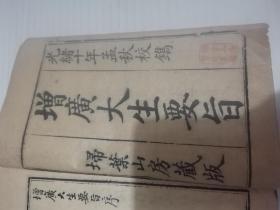 光緒十年孟秋校鐫
增廣大生要旨
埽葉山房藏版
增廣大生要旨序